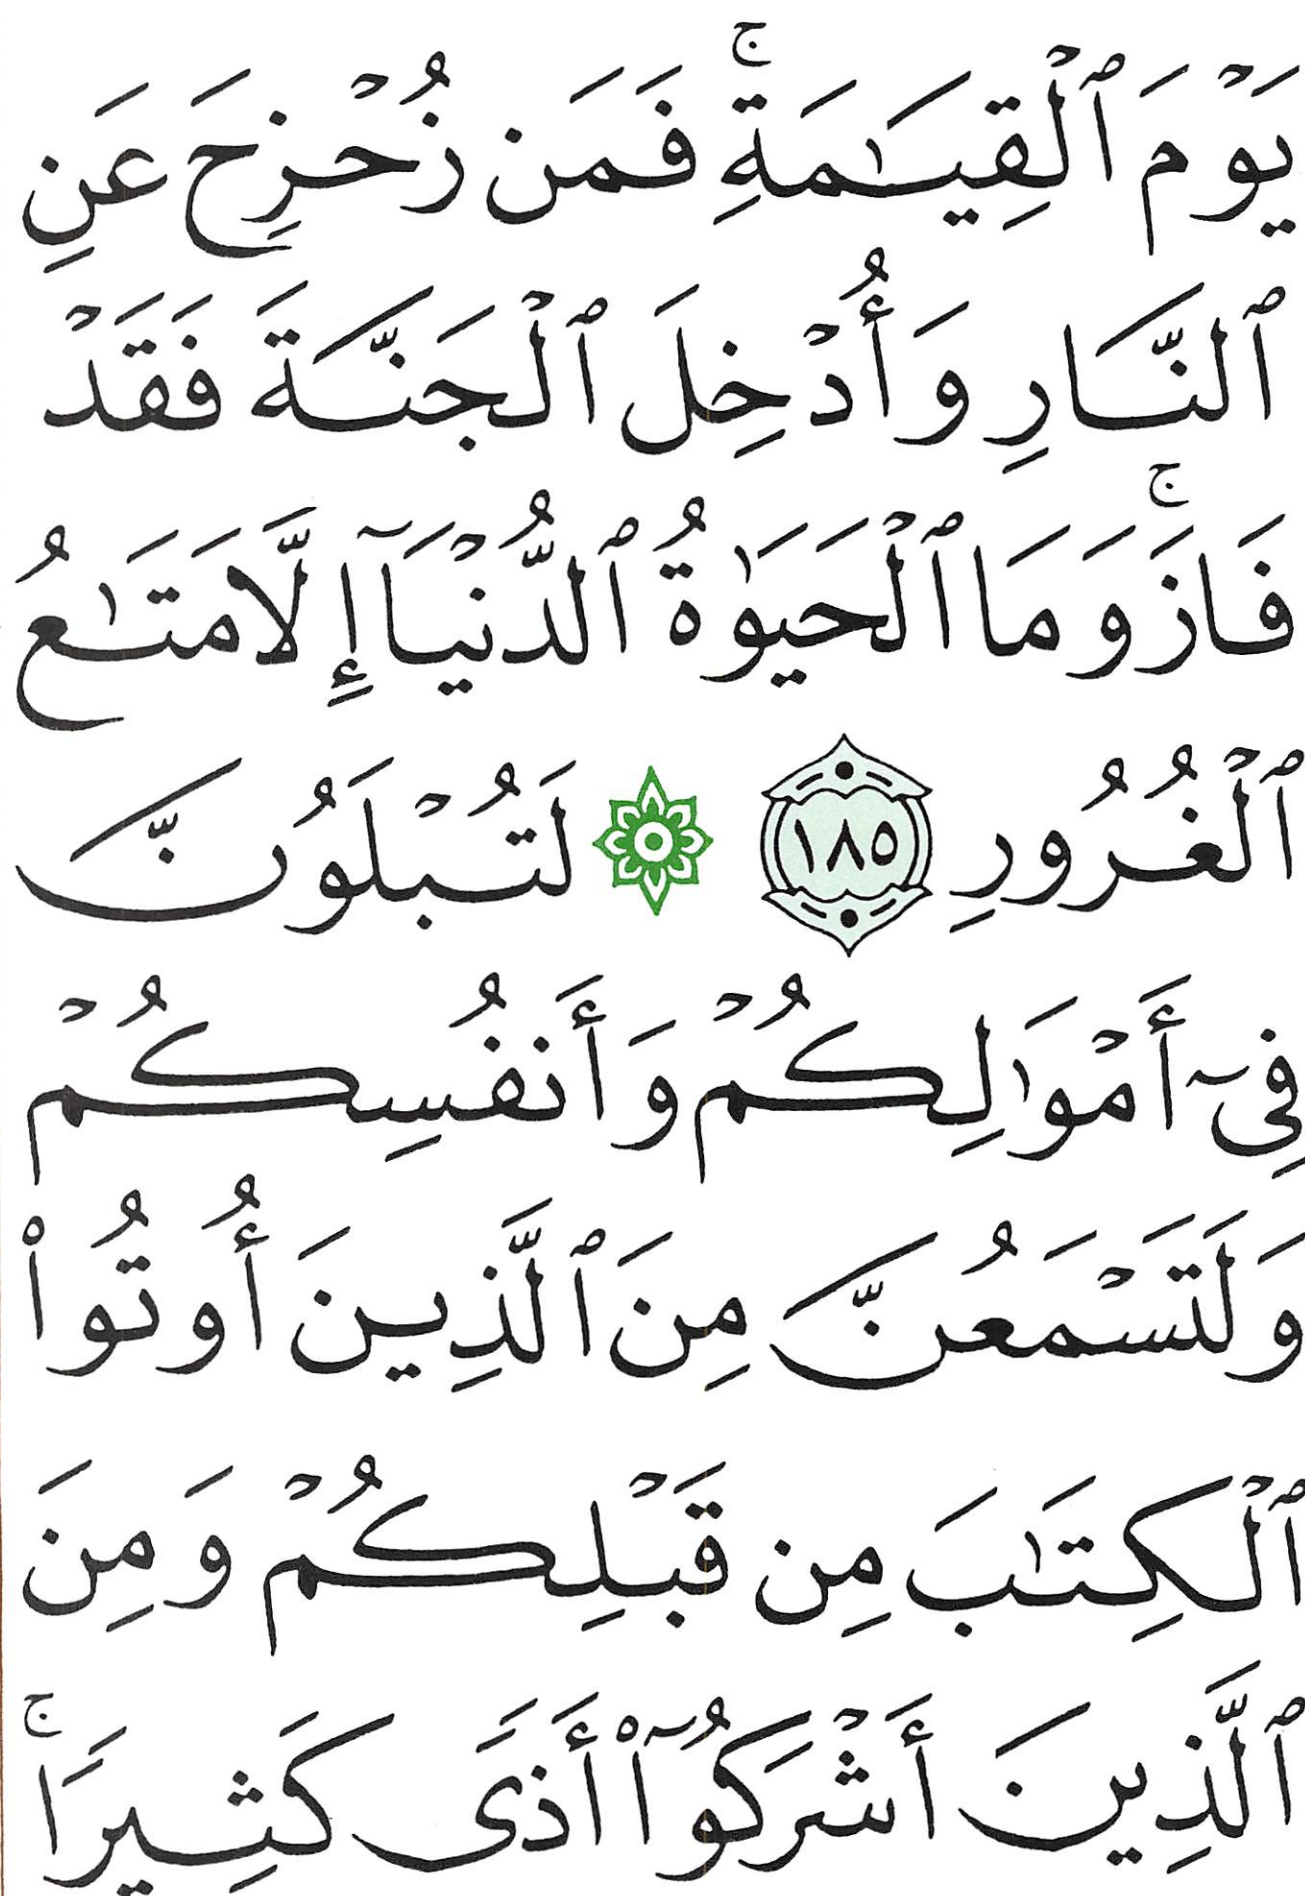 يَوْمَ ٱلْقِيَـٰمَةِ ۖۚ فَمَن زُحْزِحَ عَنِ
ٱلنَّارِ وَأُدْخِلَ ٱلْجَنَّةَ فَقَدْ
فَازَ ۚ وَمَا ٱلْحَيَوٰةُ ٱلدُّنْيَآ إِلَّا مَتَـٰعُ
ٱلْغُرُورِ ١٨٥ ۞ لَتُبْلَوُنَّ
فِىٓ أَمْوَٰلِكُمْ وَأَنفُسِكُمْ
وَلَتَسْمَعُنَّ مِنَ ٱلَّذِينَ أُوتُوا۟
ٱلْكِتَـٰبَ مِن قَبْلِكُمْ وَمِنَ
ٱلَّذِينَ أَشْرَكُوٓا۟ أَذًى كَثِيرًا ۚ